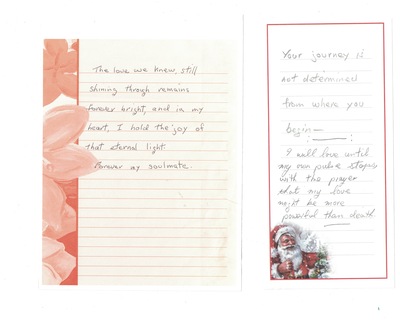 The love we knew, still
shining through remains
forever bright, and in my
heart, I hold the joy of
that eternal light.
Forever my soulmate.
Your journey is
not determined
from where you
begin—
I will love until
my own pulse stops,
with the prayer
that my love
might be more
powerful than death.